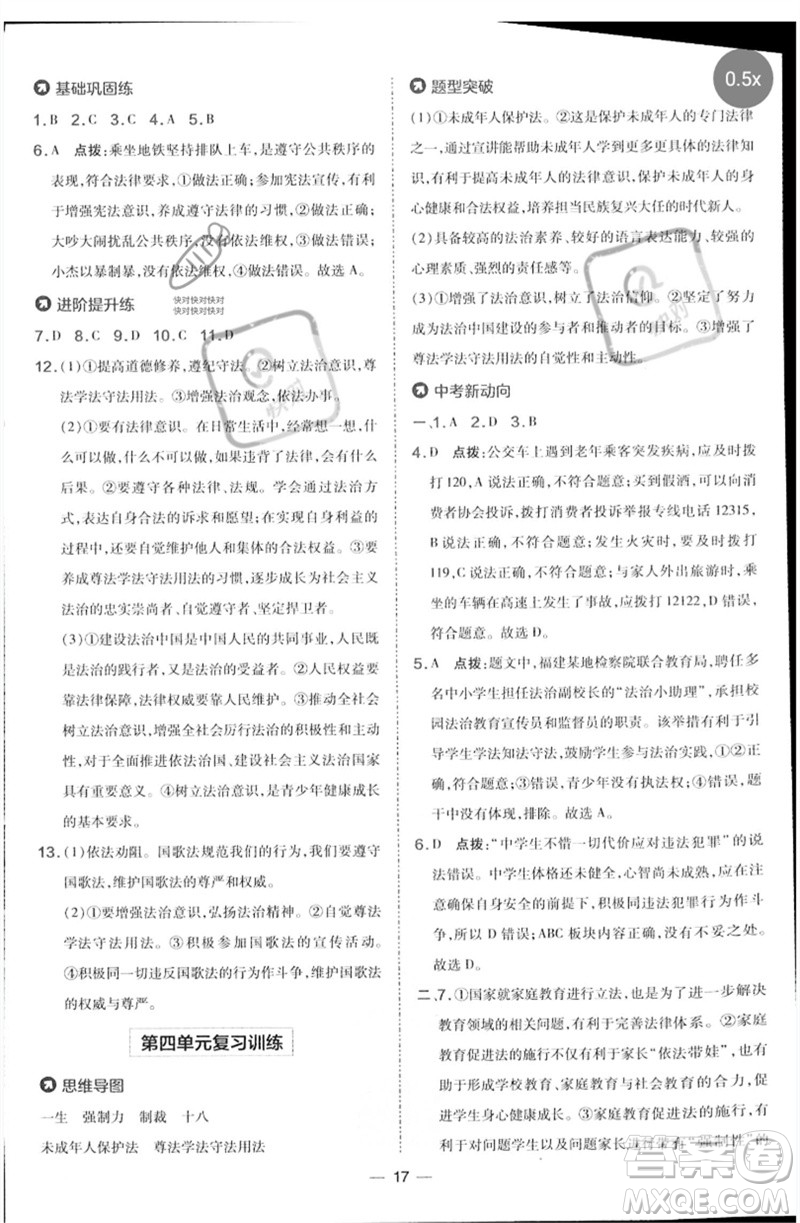 基础巩固练
1. B 2. C 3. C 4. A 5. B
6. A 点拨:乘坐地铁坚持排队上车,是遵守公共秩序的
表现,符合法律要求,①做法正确;参加宪法宣传,有利
于增强宪法意识,养成遵守法律的习惯,②做法正确;
大吵大闹扰乱公共秩序,没有依法维权,③做法错误;
小杰以暴制暴,没有依法维权,④做法错误。故选 A。
快对快对快对
快对快对快对
进阶提升练
7. D 8. C 9. D 10. C 11. D
12. (1)①提高道德修养,遵纪守法;②树立法治意识,尊
法学法守法用法。③增强法治观念,依法办事。
(2)①要有法律意识。在日常生活中,经常想一想,什
么可以做,什么不可以做,如果违背了法律,会有什么
后果。②要遵守各种法律、法规。学会通过法治方
式,表达自身合法的诉求和愿望;在实现自身利益的
过程中,还要自觉维护他人和集体的合法权益。③要
养成尊法学法守法用法的习惯,使我们成为社会主义
法治的忠实崇尚者、自觉遵守者、坚定捍卫者。
(3)①建设法治中国是中国人民的共同事业,人民既是
法治的践行者,又是法治的受益者。②人民权益
要靠法律保障,法律权威要靠人民维护。③全社会
树立法治意识,增强全社会厉行法治的积极性和主动
性,对于全面推进依法治国、建设社会主义法治国家
具有重要意义。④树立法治意识,是青少年健康成长
的基本要求。
13. (1)依法劝阻。国歌法规范我们的行为,我们要遵守
国歌法,维护国歌的尊严和权威。
(2)①增强法治意识,弘扬法治精神。②自觉尊法
学法守法用法。③积极参加国歌法的宣传活动。
④积极同一切违反国歌法的行为作斗争,维护国歌法
的权威与尊严。
第四单元复习训练
思维导图
一生 强制力 制裁 十八
未成年人保护法 尊法学法守法用法
0.5x
题型突破
(1)①未成年人保护法。②这是保护未成年人的专门法律
之一,通过宣讲能帮助未成年人学习了解更多的法律知
识,有利于提高未成年人的法律意识,保护未成年人的身
心健康和合法权益,培养担当民族复兴大任的时代新人。
(2)具备较高的法治素养、较好的语言表达能力、较强的
心理素质、强烈的责任感等。
(3)①增强了法治意识,树立了法治信仰。②坚定了努力
成为法治中国建设的参与者和推动者的目标。③增强了
尊法学法守法用法的自觉性和主动性。
中考新动向
一、1. A 2. D 3. B
4. D 点拨:公交车上遇到老年乘客突发疾病,应及时拨
打 120,A 说法正确,不符合题意;买到假酒,可以向消
费者协会投诉,拨打消费者投诉举报专线电话 12315,
B 说法正确,不符合题意;发生火灾时,要及时拨打
119,C 说法正确,不符合题意;与家人外出旅游时,乘
坐的车辆在高速上发生了事故,应拨打 12122,D 错误,
符合题意。故选 D。
5. A 点拨:题文中,福建某地检察院联合教育局,聘任多
名中小学生担任法治副校长的“法治小助理”,承担校
园法治教育宣传员和监督员的职责。该举措有利于引
导学生学法知法守法,鼓励学生互助成长,①②正
确,符合题意;③错误,青少年没有执法权;④错误,材
料中没有体现,排除。故选 A。
6. D 点拨:“中学生不惜一切代价应对违法犯罪”的说
法错误,中学生体格还未健全,心智尚未成熟,应在确
保自身安全的前提下,积极同违法犯罪行为作斗
争,所以 D 错误;ABC 板块内容,均无不妥之处。
故选 D。
二、7. ①国家就家庭教育进行立法,是为了进一步解决
教育领域的相关问题,有利于完善法律体系。②家庭
教育促进法的施行,有利于家长“依法带娃”,有
助于形成学校教育、家庭教育与社会教育的合力,共
同促进学生健康成长。③家庭教育促进法的施行,
有利于对问题学生以及问题家长具有“强制性”的
17
答案圈
MXQE.COM